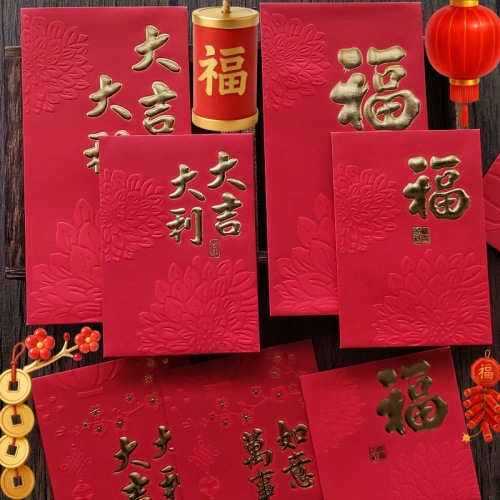 大吉
大利
福
福
大吉
大利
福
大吉
大利
如意
萬事
福
福